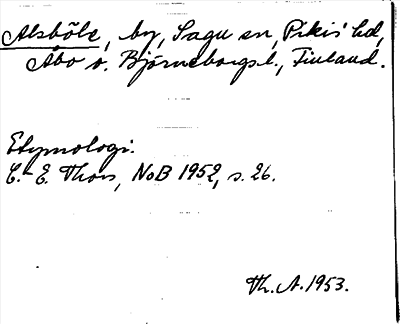 Alsböle, by, Sagu sn, Pikis' hd,
Åbo o. Björneborgs l., Finland.
Etymologi:
C.-E. Thors, NoB 1952, s. 26.
Th. A. 1953.